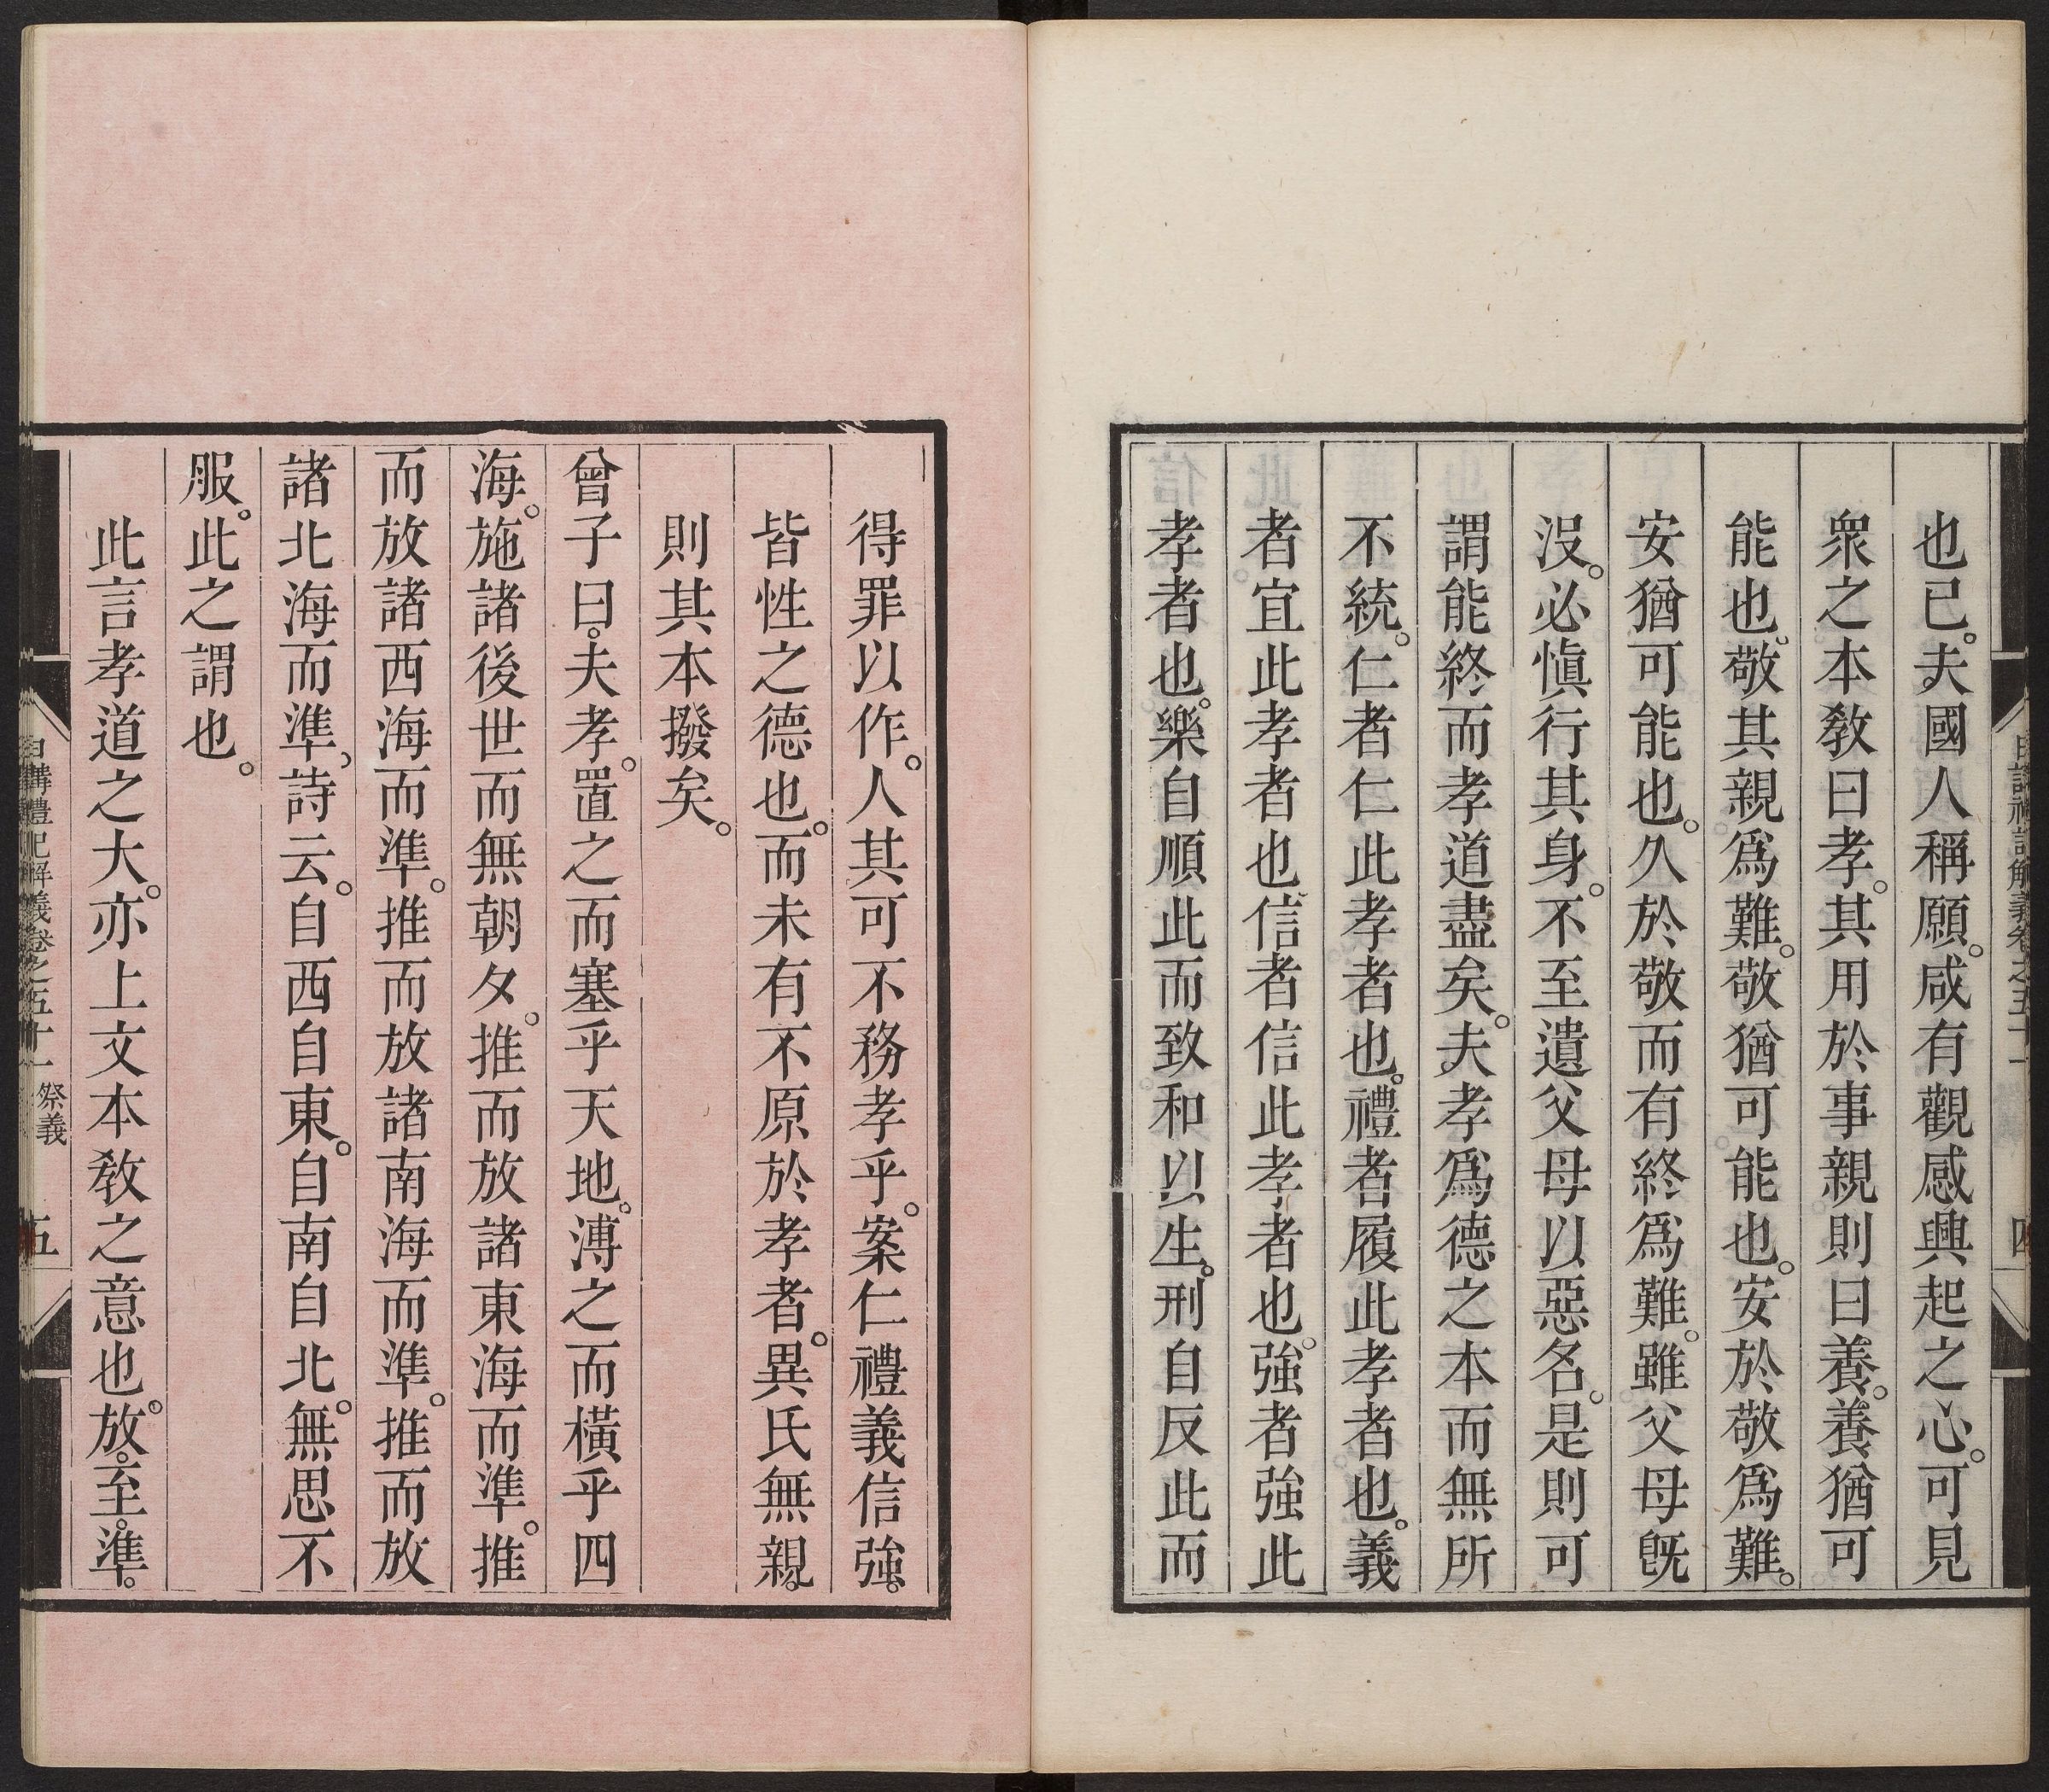 也已。夫國人稱願。咸有觀感興起之心。可見
衆之本敎曰孝。其用於事親則曰養。養猶可
能也。敬其親爲難。敬猶可能也。安於敬爲難。
安猶可能也。久於敬而有終爲難。雖父母旣
沒。必愼行其身。不至遺父母以惡名。是則可
謂能終而孝道盡矣。夫孝爲德之本而無所
不統。仁者仁此孝者也。禮者履此孝者也。義
者宜此孝者也。信者信此孝者也。強者強此
孝者也。樂自順此而致和以生。刑自反此而
得罪以作。人其可不務孝乎。案仁禮義信強。
皆性之德也。而未有不原於孝者。異氏無親。
則其本撥矣。
曾子曰。夫孝。置之而塞乎天地。溥之而橫乎四
海。施諸後世而無朝夕。推而放諸東海而準。推
而放諸西海而準。推而放諸南海而準。推而放
諸北海而準。詩云。自西自東。自南自北。無思不
服。此之謂也。
此言孝道之大。亦上文本敎之意也。放。至。準。
日講禮記解義卷之五十一 祭義 五